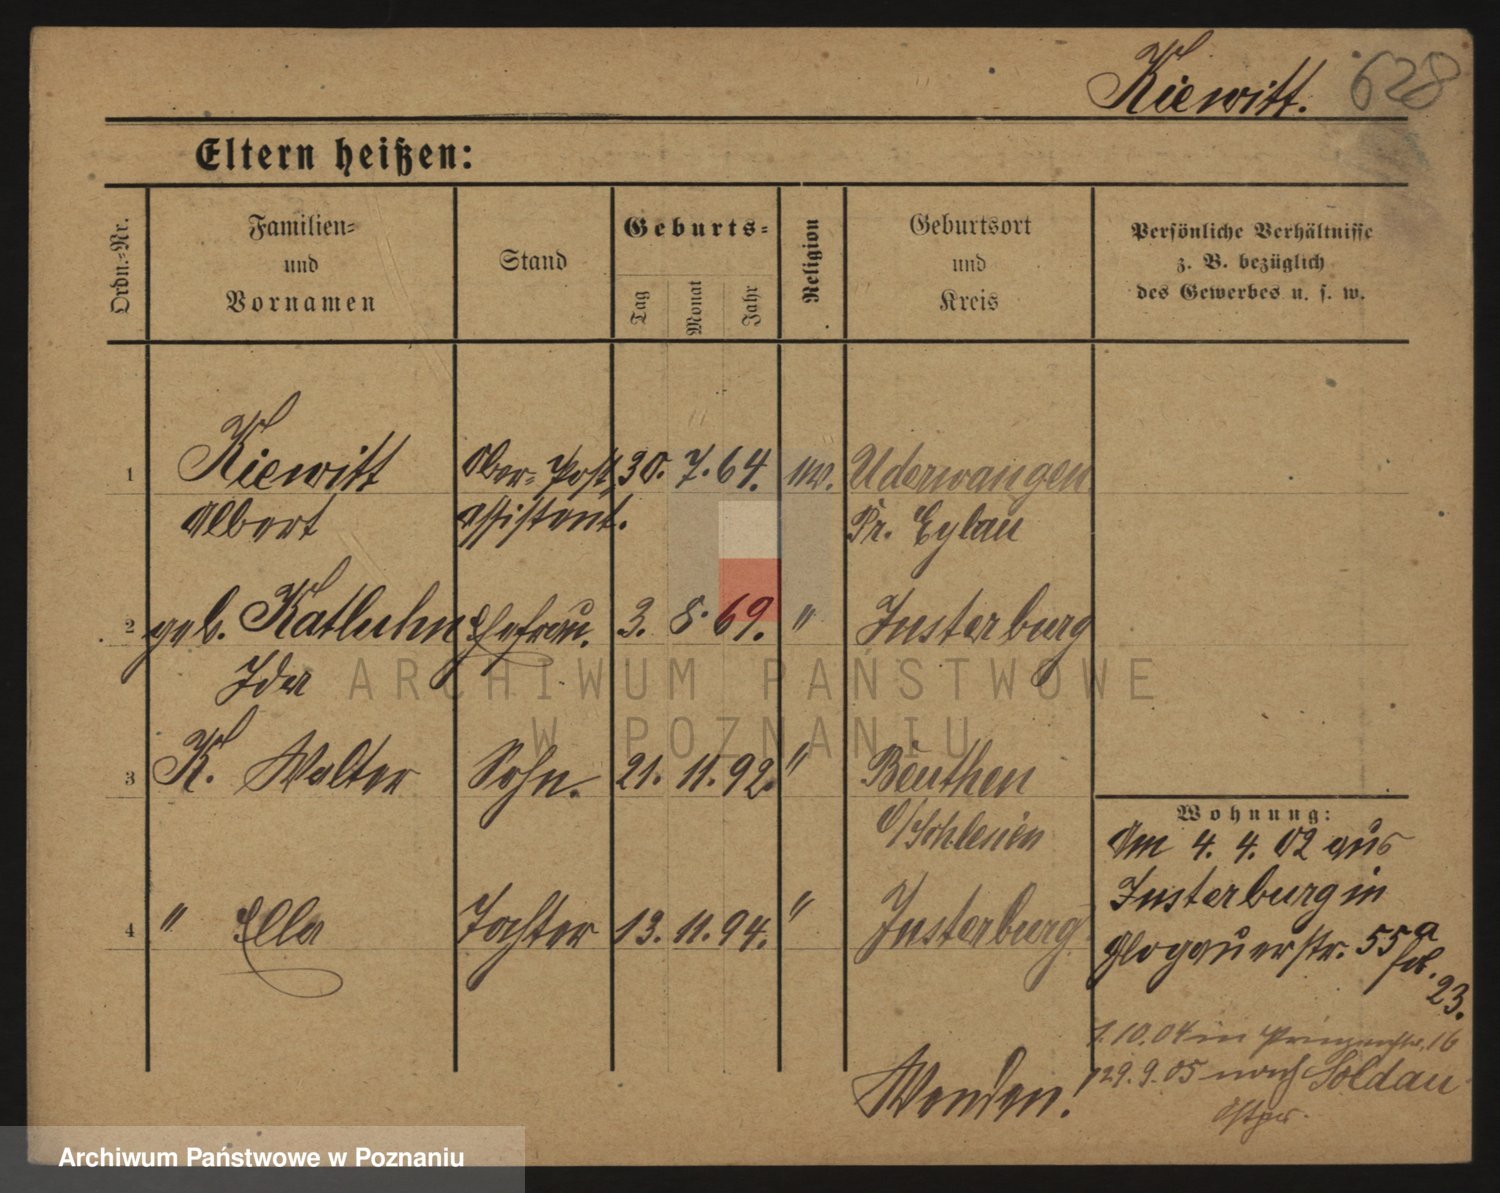 Kiewitt. 628
Eltern heißen:
Ordn.-Nr.
Familien-
und
Vornamen
Stand
Geburts-
Tag
Monat
Jahr
Religion
Geburtsort
und
Kreis
Persönliche Verhältnisse
z. B. bezüglich
des Gewerbes u. s. w.
1 Kiewitt Ober-Post 30. 7. 64. Uderwangen
Albert assistent. Pr. Eylau
2 geb. Katluhn Ehefrau. 3. 8. 69. " Insterburg
Ida
3 K. Walter Sohn. 21. 11. 92. " Beuthen
O/Schlesien
4 " Ella Tochter 13. 11. 94. " Insterburg
Wohnung:
Am 4. 4. 02 aus
Insterburg in
Glogauerstr. 55a
23.
1.10.04 in 16
29.9.05 nach Soldau
Ostpr.
Wenden!
ARCHIWUM PAŃSTWOWE
W POZNANIU
Archiwum Państwowe w Poznaniu